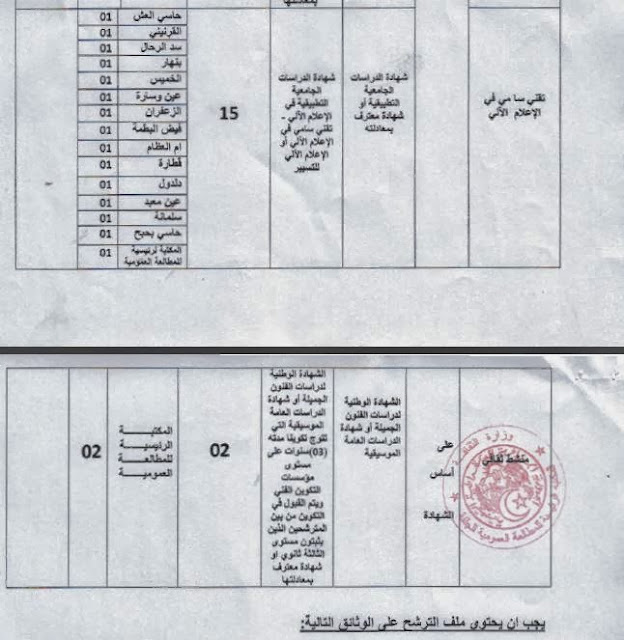 بمعادلتها
تقني سامي في
الإعلام الآلي
شهادة الدراسات
الجامعية
التطبيقية أو
شهادة معترف
بمعادلته
شهادة الدراسات
الجامعية
التطبيقية في
الإعلام الآلي -
تقني سامي في
الإعلام الآلي أو
الإعلام الآلي
للتسيير
15
حاسي العش 01
القرنيني 01
سد الرحال 01
بنهار 01
الخميس 01
عين وسارة 01
الزعفران 01
فيض البطمة 01
ام العظام 01
قطارة 01
دلدول 01
عين معبد 01
سلمانة 01
حاسي بحبح 01
المكتبة لرئيسية
للمطالعة العمومية 01
منشط ثقافي
على
أساس
الشهادة
الشهادة الوطنية
لدراسات الفنون
الجميلة أو شهادة
الدراسات العامة
الموسيقية
الشهادة الوطنية
لدراسات الفنون
الجميلة أو شهادة
الدراسات العامة
الموسيقية التي
تتوج تكوينا مدته
(03)سنوات على
مستوى
مؤسسات
التكوين الفني
ويتم القبول في
التكوين من بين
المترشحين الذين
يثبتون مستوى
الثالثة ثانوي او
شهادة معترف
بمعادلتها
02
المكتبة
الرئيسية
للمطالعة
العمومية
02
وزارة الثقافة
يجب ان يحتوي ملف الترشح على الوثائق التالية: